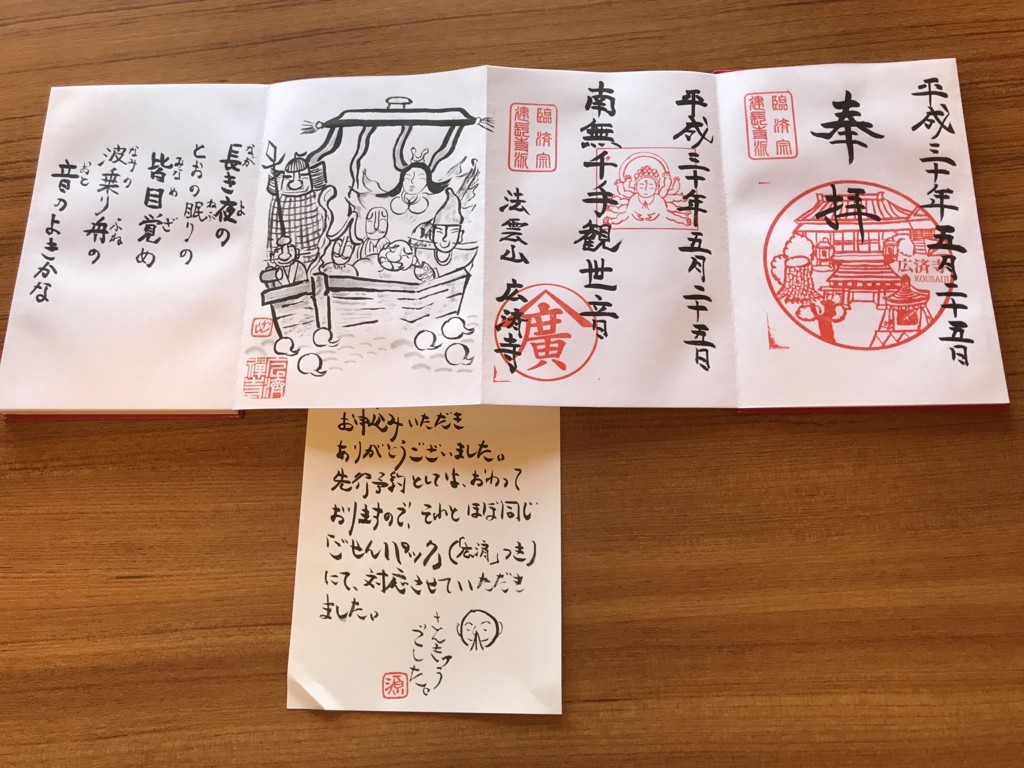 平成三十年五月二十五日
奉拝
臨済宗
建長寺派
広済寺
KOUSAIJI
平成三十年五月二十五日
南無千手観世音
臨済宗
建長寺派
法雲山 広済寺
廣
長き夜の
なか よ
とおの眠りの
ねぶ
皆目覚め
みなめ ざ
波乗り舟の
なみの ふね
音のよきかな
おと
お申込みいただき
ありがとうございました。
先行予約としては、おわって
おりますので、それとほぼ同じ
「ごせんパック」(「広済」つき)
にて、対応させていただき
ました。
でした。
源